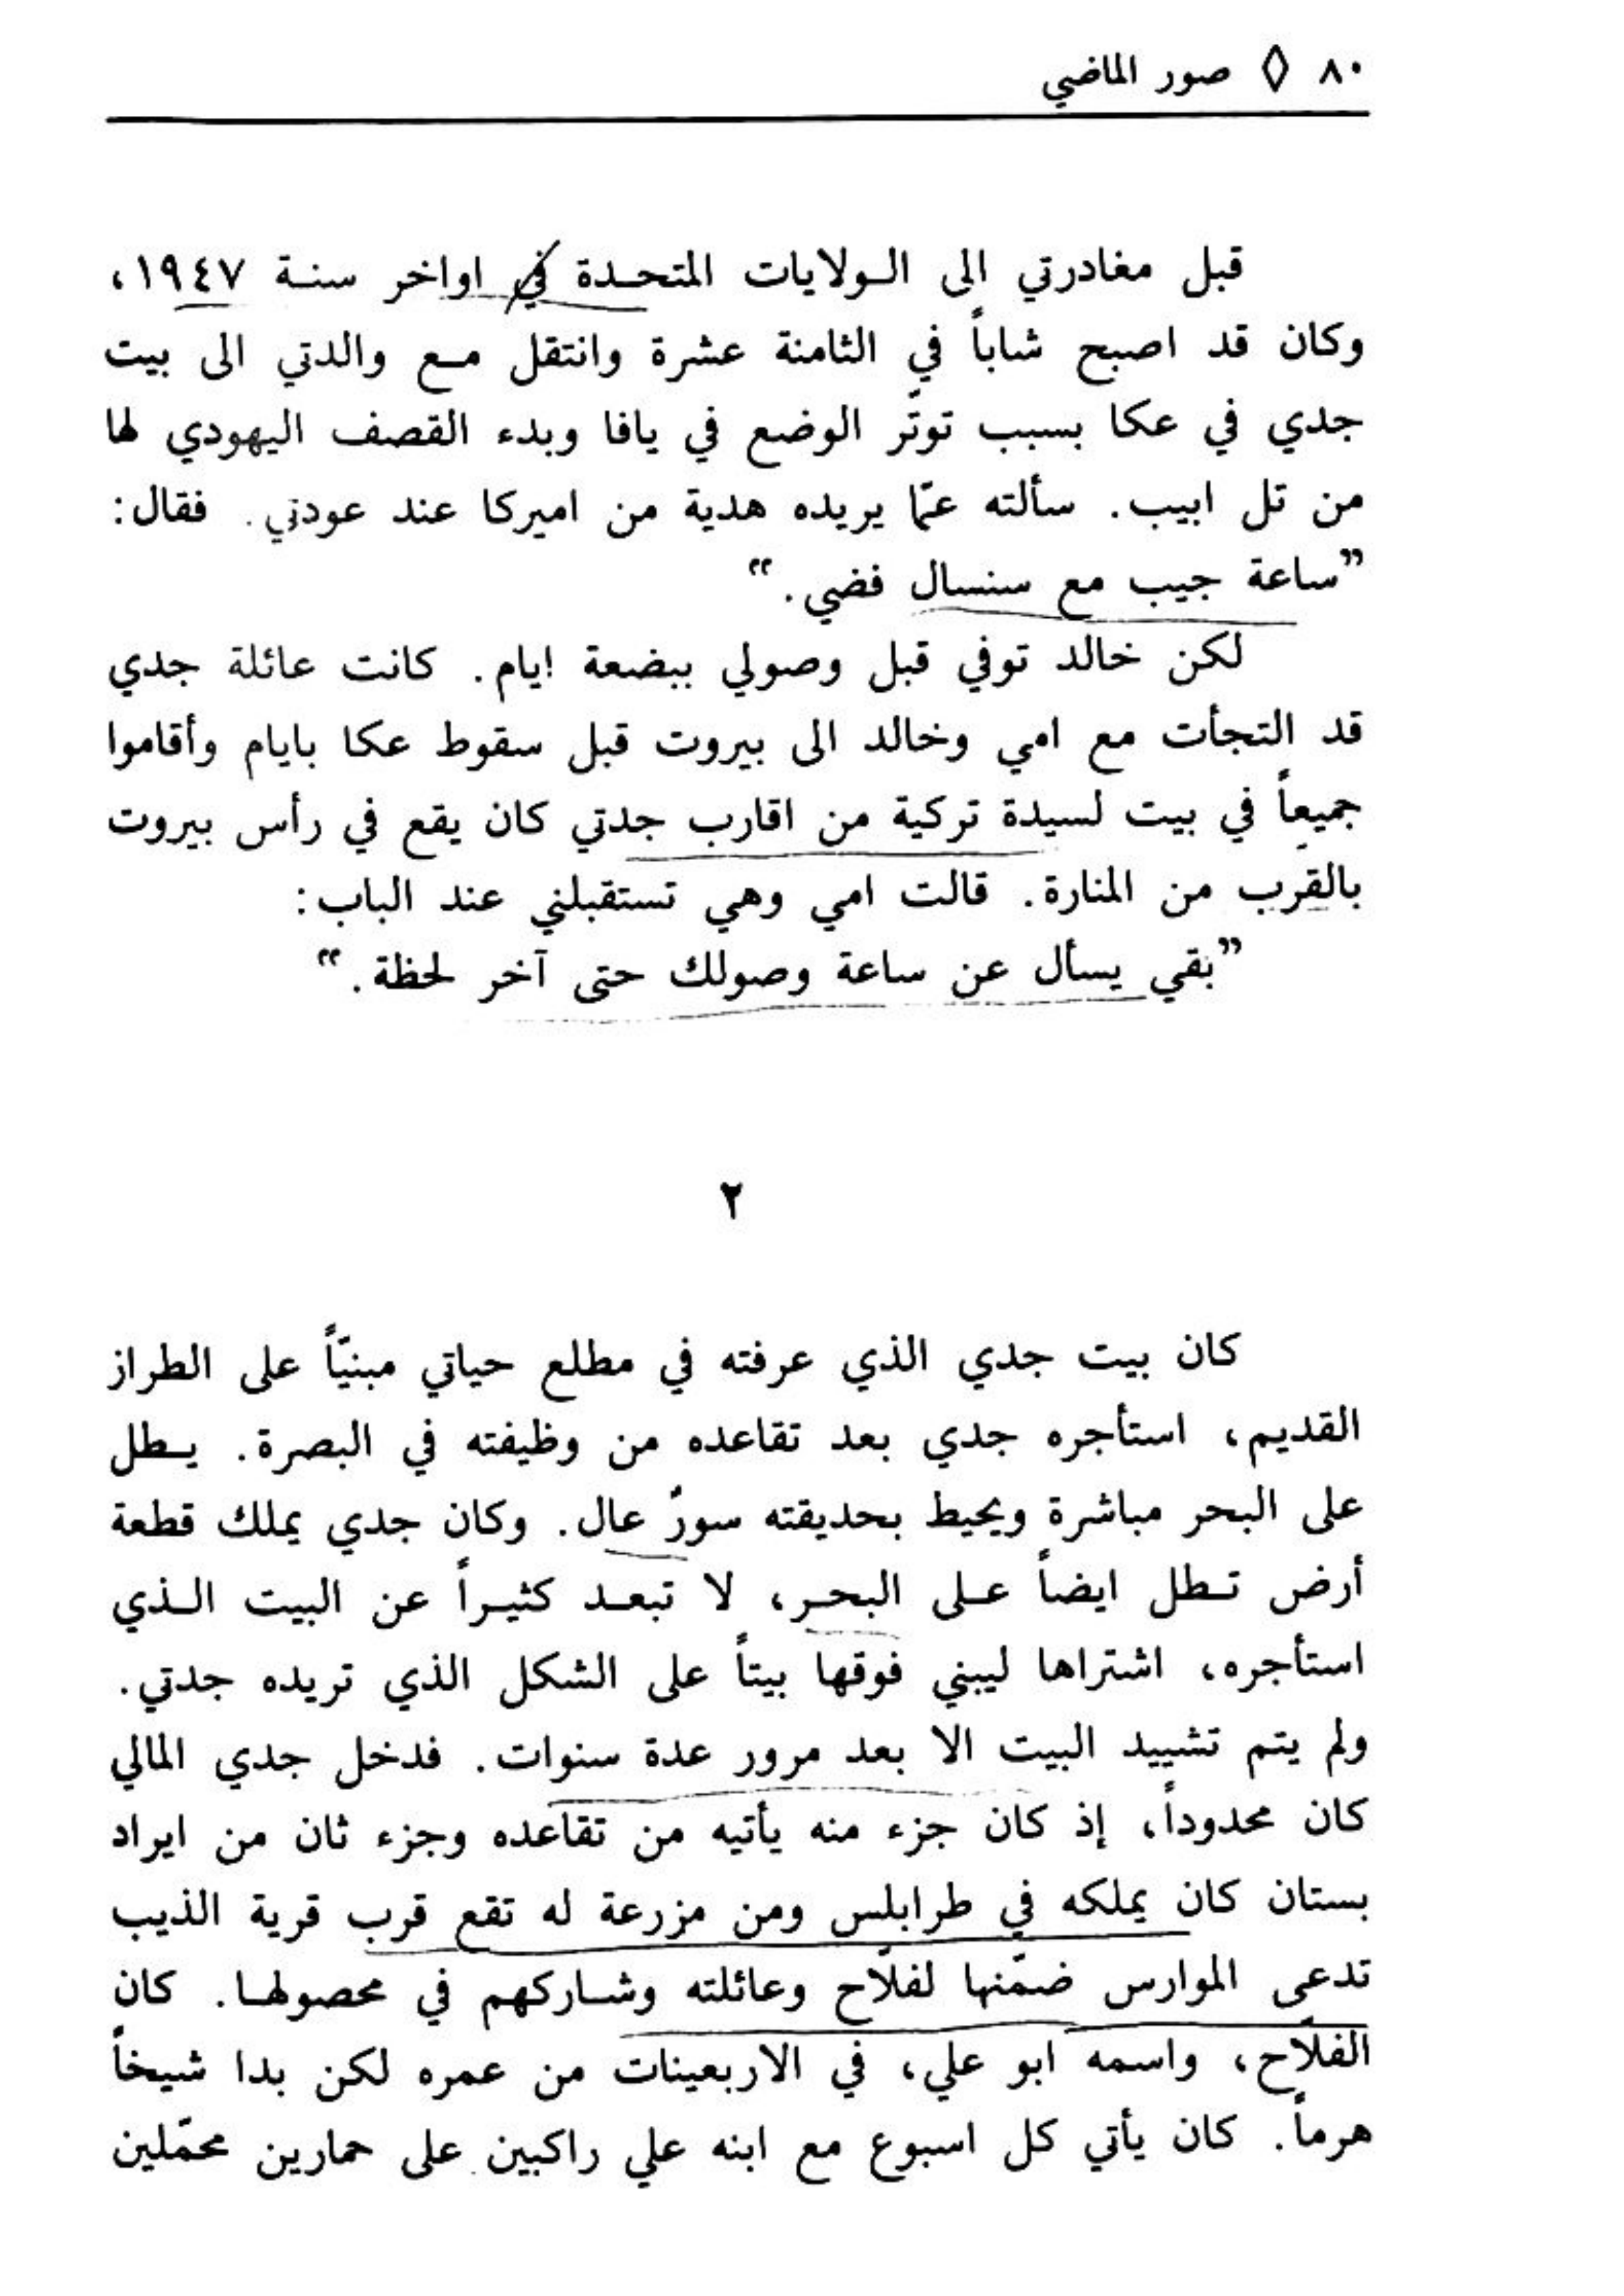 ٨٠ ◊ صور الماضي
قبل مغادرتي الى الـولايات المتحـدة في اواخر سنـة ١٩٤٧،
وكان قد اصبح شاباً في الثامنة عشرة وانتقل مـع والدتي الى بيت
جدي في عكا بسبب توتّر الوضع في يافا وبدء القصف اليهودي لها
من تل ابيب. سألته عمّا يريده هدية من اميركا عند عودتي. فقال:
”ساعة جيب مع سنسال فضي.“
لكن خالد توفي قبل وصولي ببضعة ايام. كانت عائلة جدي
قد التجأت مع امي وخالد الى بيروت قبل سقوط عكا بايام وأقاموا
جميعاً في بيت لسيدة تركية من اقارب جدتي كان يقع في رأس بيروت
بالقرب من المنارة. قالت امي وهي تستقبلني عند الباب:
”بقي يسأل عن ساعة وصولك حتى آخر لحظة.“
٢
كان بيت جدي الذي عرفته في مطلع حياتي مبنيّاً على الطراز
القديم، استأجره جدي بعد تقاعده من وظيفته في البصرة. يـطل
على البحر مباشرة ويحيط بحديقته سورٌ عال. وكان جدي يملك قطعة
أرض تـطل ايضاً عـلى البحـر، لا تبعـد كثيـراً عن البيت الـذي
استأجره، اشتراها ليبني فوقها بيتاً على الشكل الذي تريده جدتي.
ولم يتم تشييد البيت الا بعد مرور عدة سنوات. فدخل جدي المالي
كان محدوداً، إذ كان جزء منه يأتيه من تقاعده وجزء ثان من ايراد
بستان كان يملكه في طرابلس ومن مزرعة له تقع قرب قرية الذيب
تدعى الموارس ضمّنها لفلّاح وعائلته وشـاركهم في محصولهـا. كان
الفلّاح، واسمه ابو علي، في الاربعينات من عمره لكن بدا شيخاً
هرماً. كان يأتي كل اسبوع مع ابنه علي راكبين على حمارين محمّلين